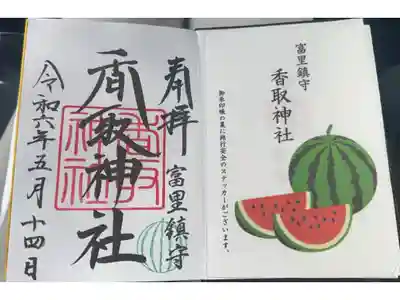 奉拝
富里鎮守
香取神社
香取神社
令和六年五月十四日
富里鎮守
香取神社
御朱印帳の裏に旅行安全のステッカーがございます。